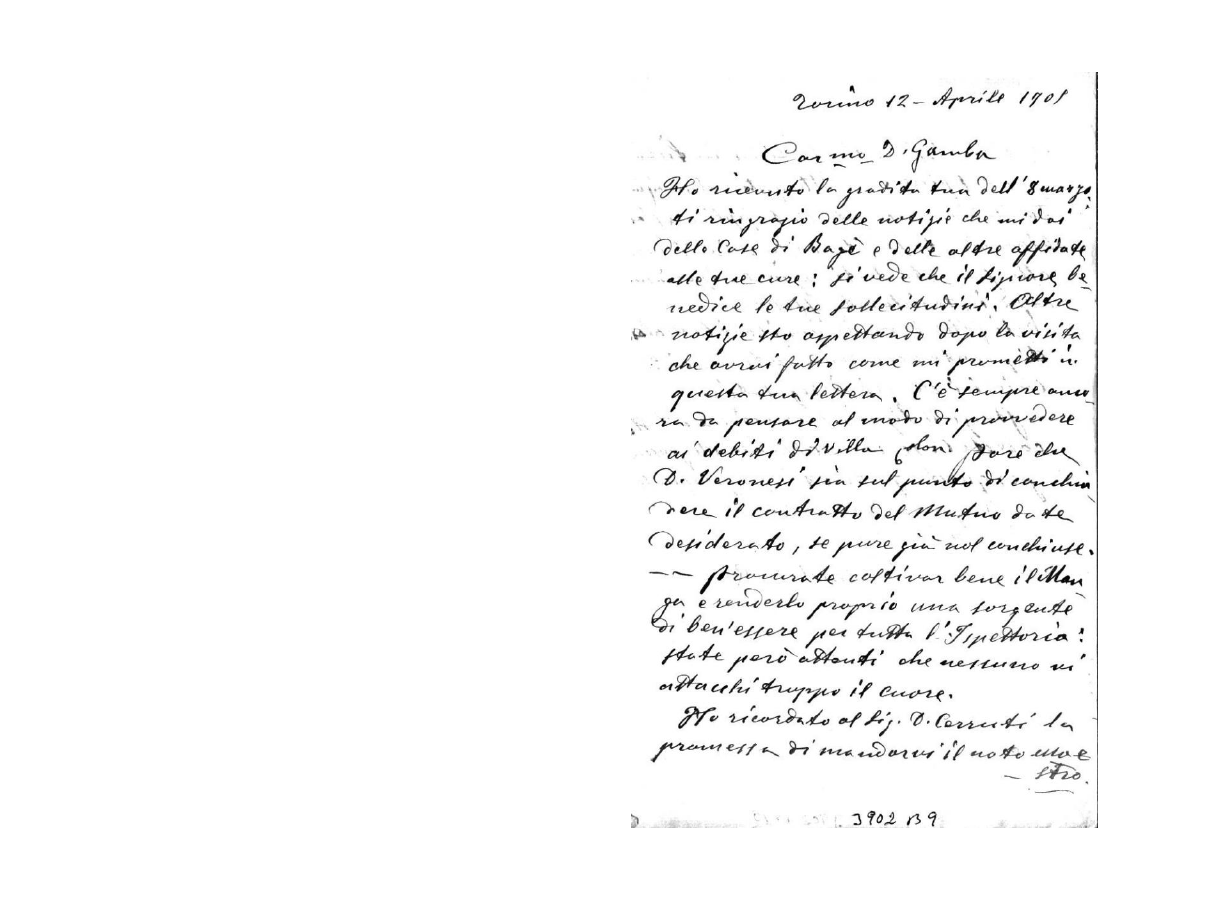 Torino 12 - Aprile 1905
Car.mo D. Gamba
Ho ricevuto la gradita tua dell' 8 marzo.
ti ringrazio delle notizie che mi dai
delle Case di Bagè e delle altre affidate
alle tue cure: si vede che il Signore be-
nedice le tue sollecitudini. Altre
notizie sto aspettando dopo la visita
che avrai fatto come mi prometti in
questa tua lettera. C'è sempre anco-
ra da pensare al modo di provvedere
ai debiti di Villa Colon. Pare che
D. Veronesi sia sul punto di conchiu
dere il contratto del Mutuo da te
desiderato, se pure già nol conchiuse.
-- Procurate coltivar bene il Man
ga e renderlo proprio una sorgente
di ben'essere per tutta l'Ispettoria:
state però attenti che nessuno vi
attacchi troppo il cuore.
Ho ricordato al Sig. D. Cerruti la
promessa di mandarvi il noto mae
- stro.
3902 B 9